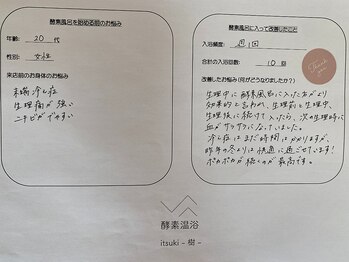 酵素風呂を始める前のお悩み
年齢: 20 代
性別: 女性
来店前のお身体のお悩み
末端冷え症
生理痛が強い
ニキビができやすい
酵素風呂に入って改善したこと
入浴頻度: 週1回
合計の入浴回数: 10 回
Thank you
改善したお悩み(何がどうなりましたか?)
生理中に酵素風呂に入った方がより
効果的と言われ、生理前と生理中、
生理後に続けて入ったら、次の生理時に
血がサラサラになっていました。
冷え症はまだ時間はかかりますが、
昨年の冬よりは快適に過ごせています!
ポカポカが続くのが最高です。
酵素温浴
itsuki - 樹 -